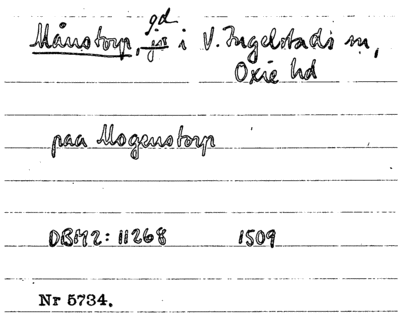 Månstorp, gd i V. Ingelstads sn,
Oxie hd
paa Mogenstorp
DBM2: 11268 1509
Nr 5734.